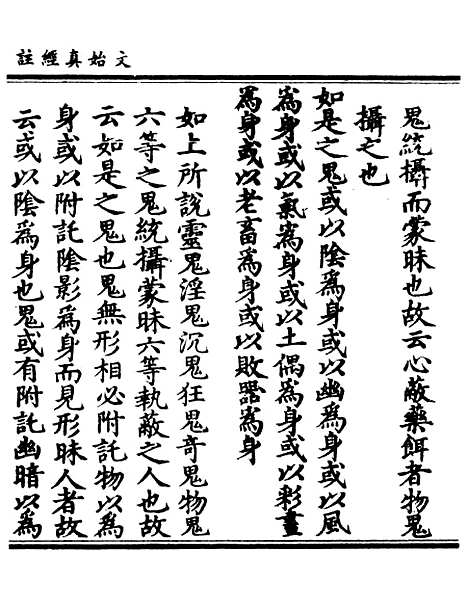 文始真經註
鬼統攝而蒙昧也故云心蔽藥餌者物鬼
攝之也
如是之鬼或以陰為身或以幽為身或以風
為身或以氣為身或以土偶為身或以彩畫
為身或以老畜為身或以敗器為身
如上所說靈鬼淫鬼沉鬼狂鬼奇鬼物鬼
六等之鬼統攝蒙昧六等執蔽之人也故
云如是之鬼也鬼無形相必附託物以為
身或以附託陰影為身而見形昧人者故
云或以陰為身也鬼或有附託幽暗以為